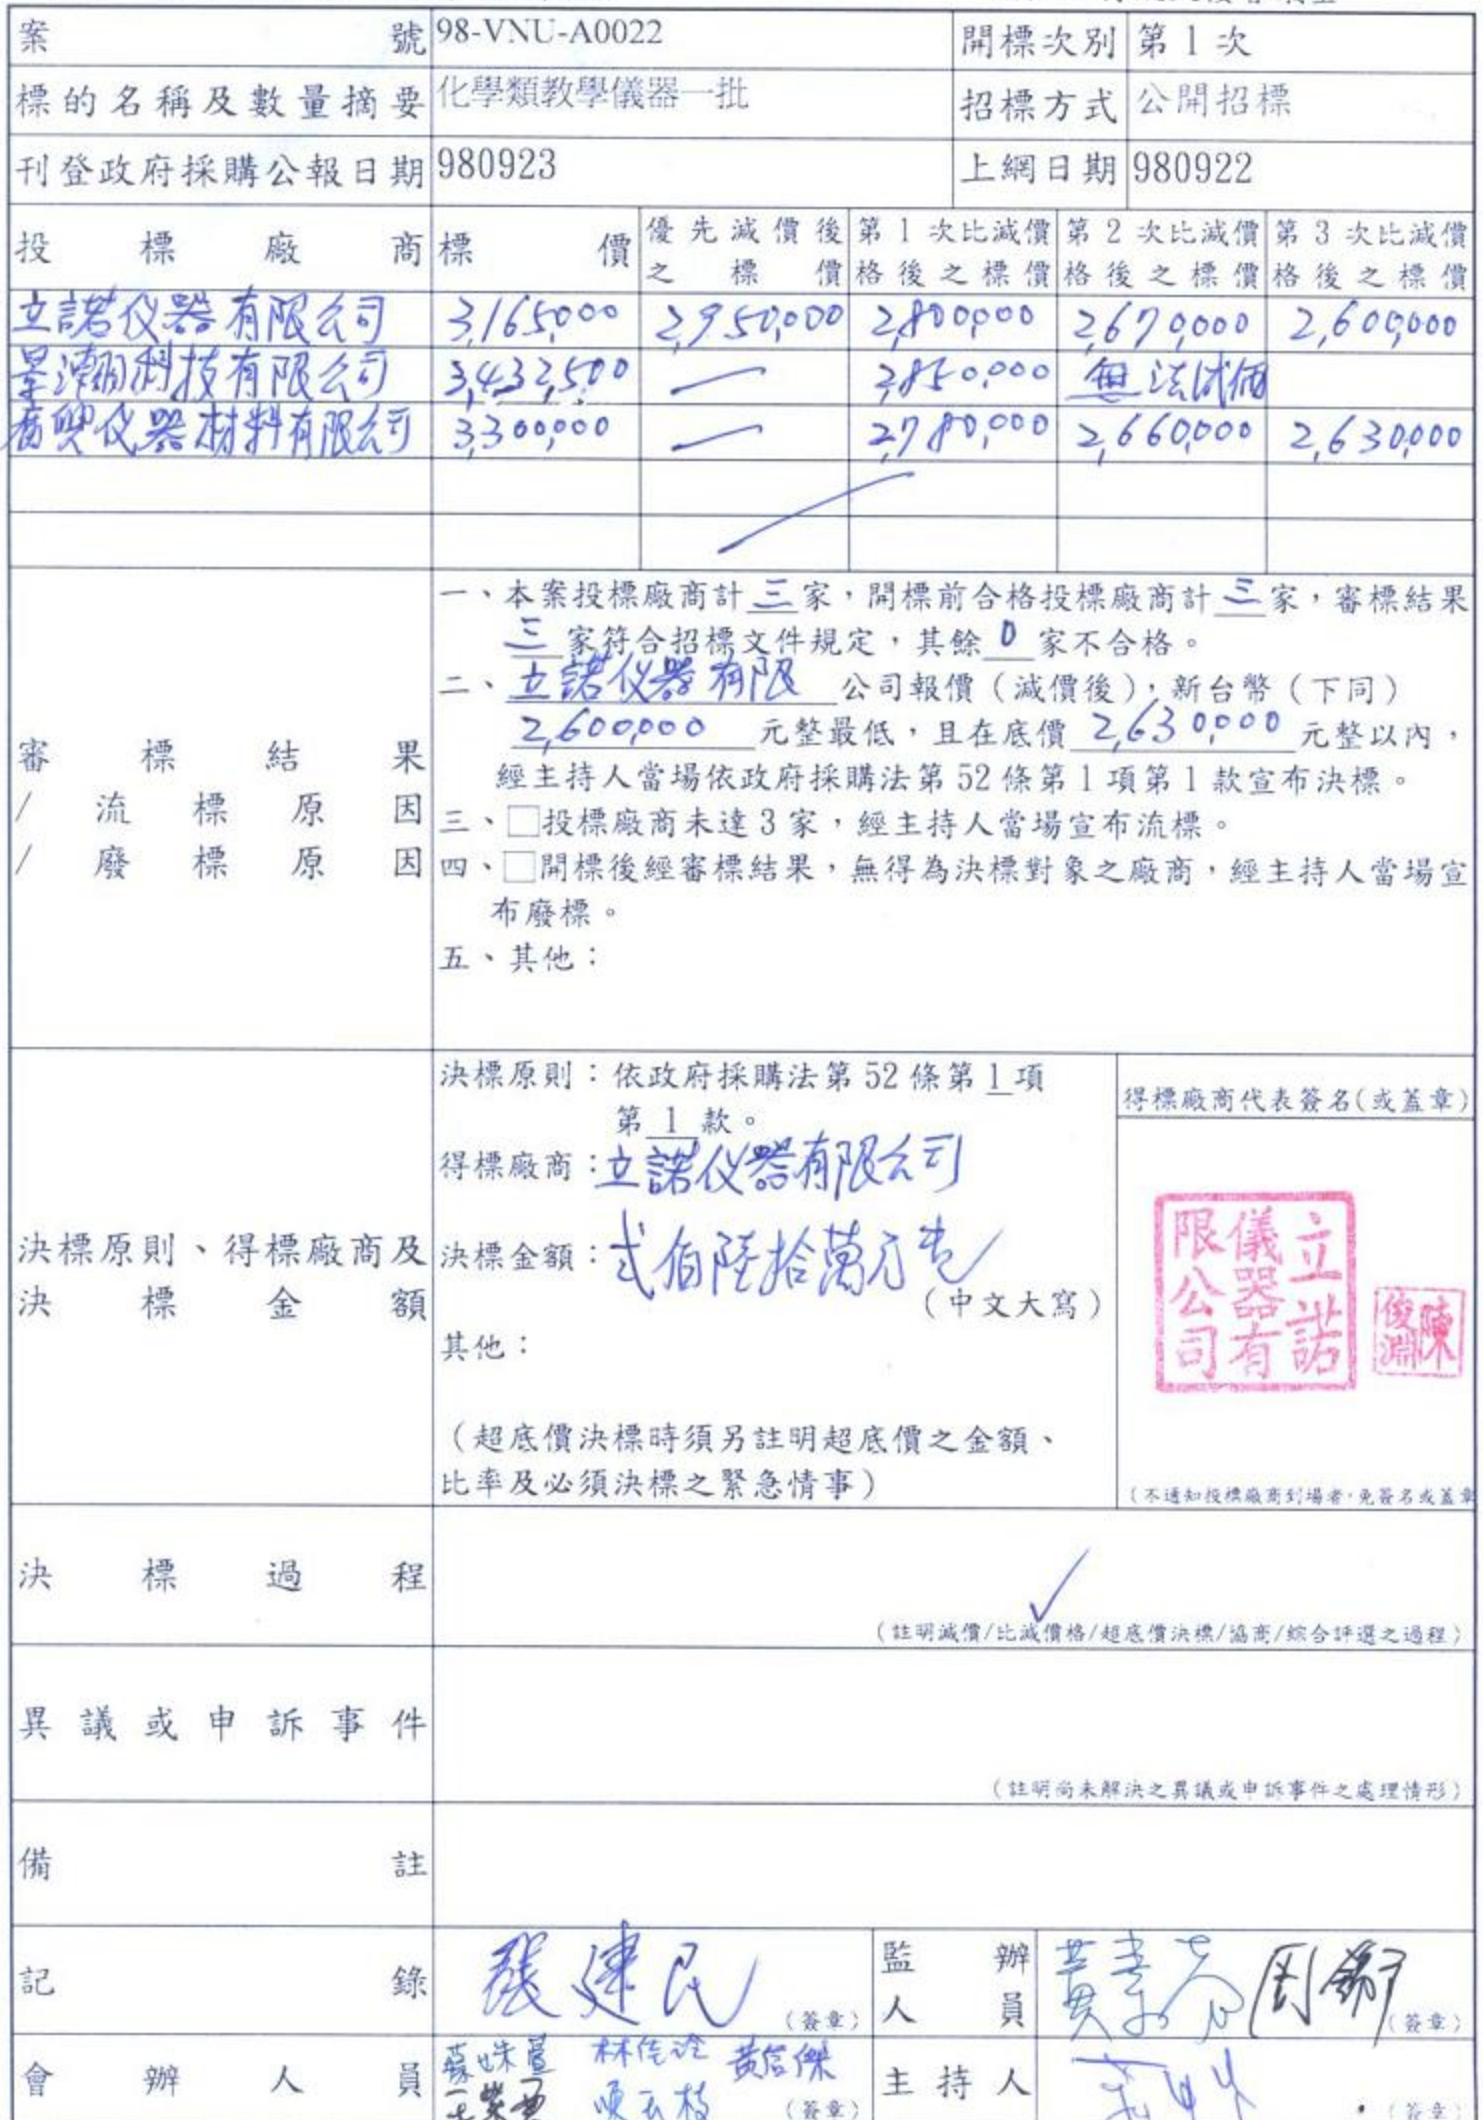 案號 98-VNU-A0022 開標次別 第 1 次
標的名稱及數量摘要 化學類教學儀器一批 招標方式 公開招標
刊登政府採購公報日期 980923 上網日期 980922
投標廠商 標價 優先減價後之標價 第 1 次比減價格後之標價 第 2 次比減價格後之標價 第 3 次比減價格後之標價
立諾仪器有限公司 3,165,000 2,950,000 2,800,000 2,670,000 2,600,000
科技有限公司 3,432,500 — 2,850,000 無法減價
仪器材料有限公司 3,300,000 — 2,780,000 2,660,000 2,630,000
審標結果
/流標原因
/廢標原因
一、本案投標廠商計 三 家,開標前合格投標廠商計 三 家,審標結果
三 家符合招標文件規定,其餘 0 家不合格。
二、立諾仪器有限 公司報價(減價後),新台幣(下同)
2,600,000 元整最低,且在底價 2,630,000 元整以內,
經主持人當場依政府採購法第 52 條第 1 項第 1 款宣布決標。
三、□投標廠商未達 3 家,經主持人當場宣布流標。
四、□開標後經審標結果,無得為決標對象之廠商,經主持人當場宣
布廢標。
五、其他:
決標原則、得標廠商及
決標金額
決標原則:依政府採購法第 52 條第 1 項
第 1 款。
得標廠商:立諾仪器有限公司
決標金額:貳佰陸拾萬元整
(中文大寫)
其他:
(超底價決標時須另註明超底價之金額、
比率及必須決標之緊急情事)
得標廠商代表簽名(或蓋章)
立諾儀器有限公司
陳俊淵
(不通知投標廠商到場者,免簽名或蓋章
決標過程
(註明減價/比減價格/超底價決標/協商/綜合評選之過程)
異議或申訴事件
(註明尚未解決之異議或申訴事件之處理情形)
備註
記錄 張建民 (簽章) 監辦人員 (簽章)
會辦人員 黃信傑 (簽章) 主持人 (簽章)